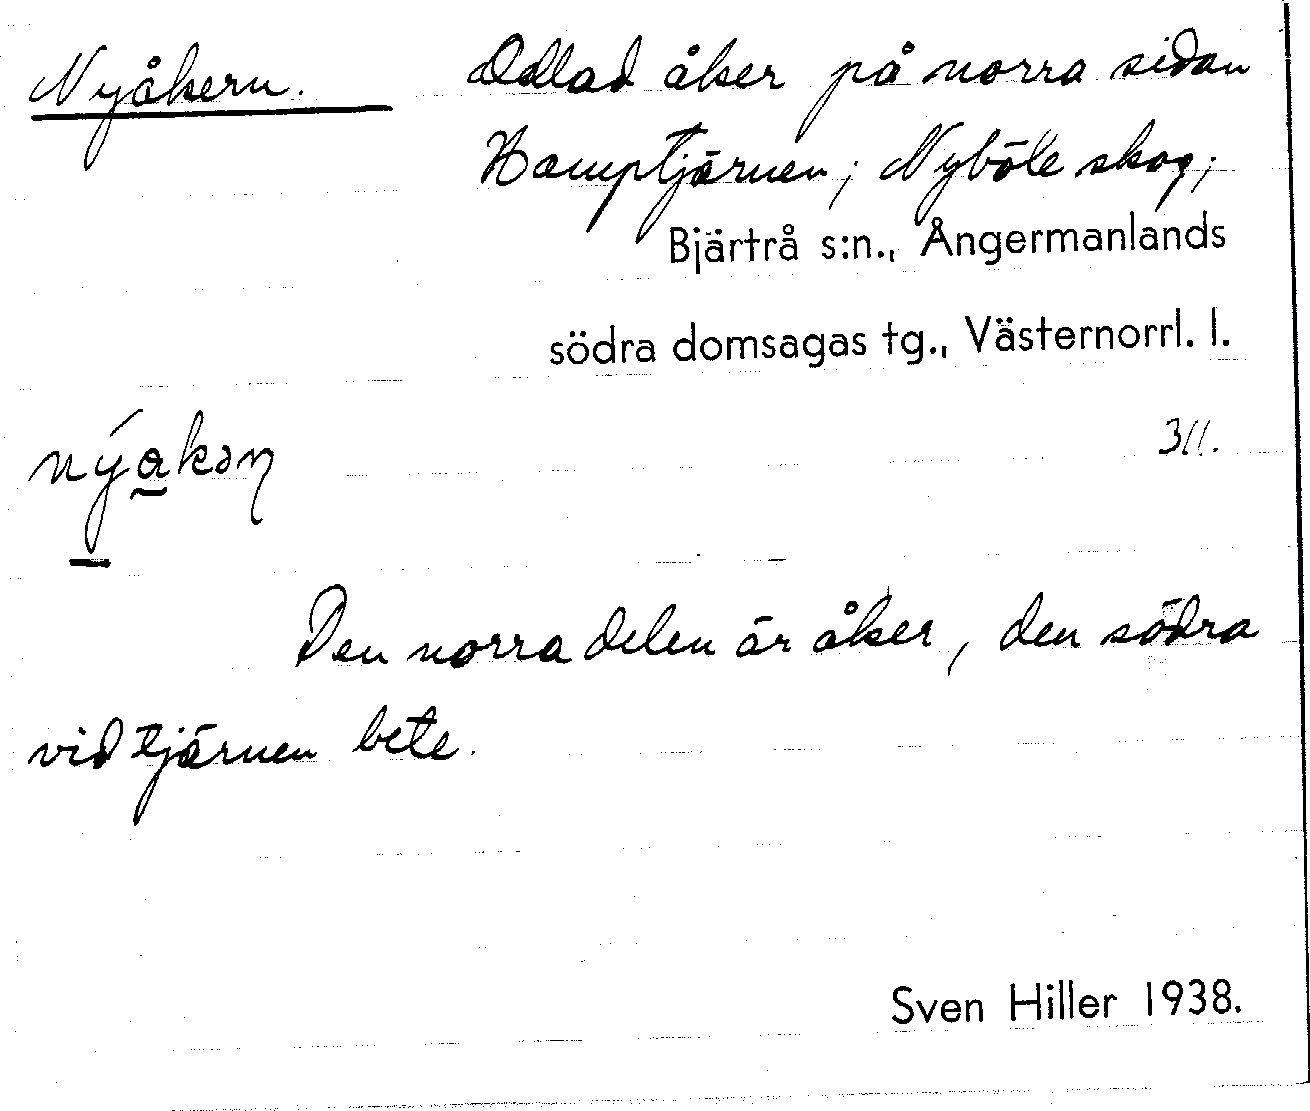 Nyåkern. Odlad åker på norra sidan
Hamptjärnen; Nyböle skog;
Bjärtrå s:n., Ångermanlands
södra domsagas tg., Västernorrl. l.
311.
Den norra delen är åker, den södra
vid tjärnen bete.
Sven Hiller 1938.